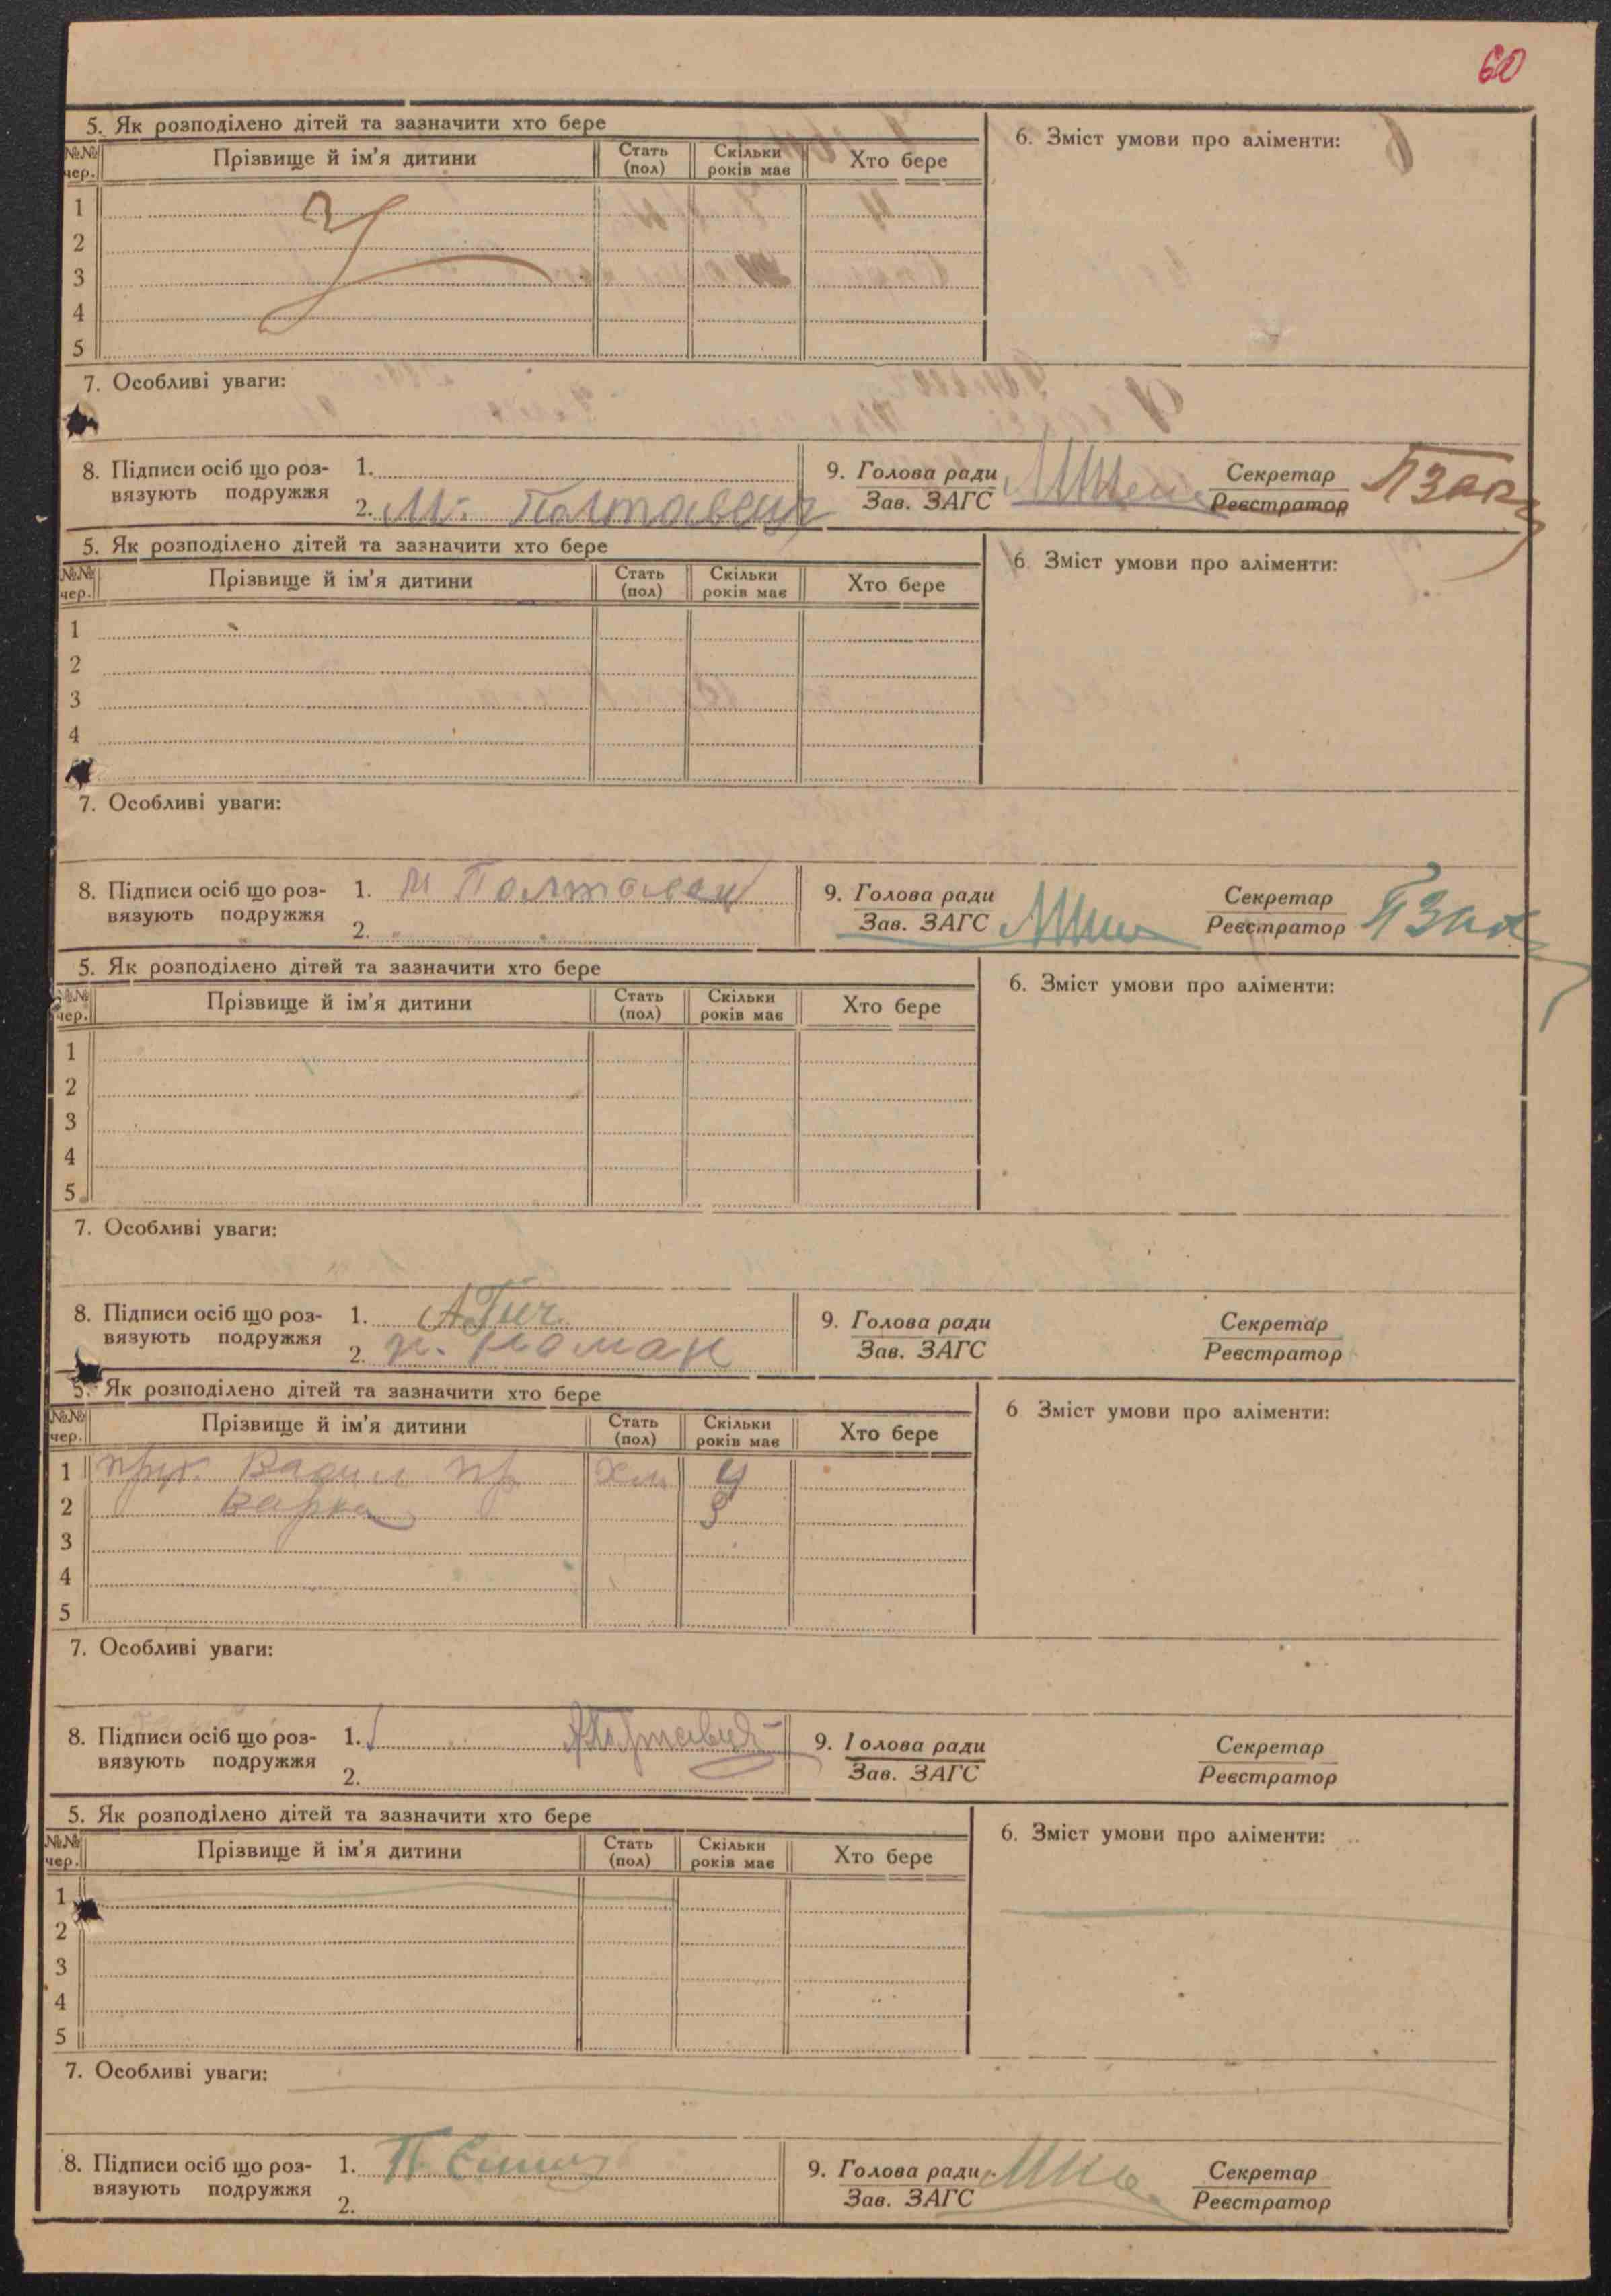 60
5. Як розподілено дітей та зазначити хто бере
6. Зміст умови про аліменти:
№№ чер. Прізвище й ім'я дитини Стать (пол) Скільки років має Хто бере
1
2
3
4
5
7. Особливі уваги:
8. Підписи осіб що роз- 1.
вязують подружжя 2. М. Полтавець
9. Голова ради Секретар
Зав. ЗАГС Реєстратор
5. Як розподілено дітей та зазначити хто бере
6. Зміст умови про аліменти:
№№ чер. Прізвище й ім'я дитини Стать (пол) Скільки років має Хто бере
1
2
3
4
7. Особливі уваги:
8. Підписи осіб що роз- 1. М Полтавец
вязують подружжя 2.
9. Голова ради Секретар
Зав. ЗАГС Реєстратор
5. Як розподілено дітей та зазначити хто бере
6. Зміст умови про аліменти:
№№ чер. Прізвище й ім'я дитини Стать (пол) Скільки років має Хто бере
1
2
3
4
5
7. Особливі уваги:
8. Підписи осіб що роз- 1.
вязують подружжя 2.
9. Голова ради Секретар
Зав. ЗАГС Реєстратор
5. Як розподілено дітей та зазначити хто бере
6 Зміст умови про аліменти:
№№ чер. Прізвище й ім'я дитини Стать (пол) Скільки років має Хто бере
1 4
2 Варка
3
4
5
7. Особливі уваги:
8. Підписи осіб що роз- 1.
вязують подружжя 2.
9. Голова ради Секретар
Зав. ЗАГС Реєстратор
5. Як розподілено дітей та зазначити хто бере
6. Зміст умови про аліменти:
№№ чер. Прізвище й ім'я дитини Стать (пол) Скільки років має Хто бере
1
2
3
4
5
7. Особливі уваги:
8. Підписи осіб що роз- 1.
вязують подружжя 2.
9. Голова ради Секретар
Зав. ЗАГС Реєстратор